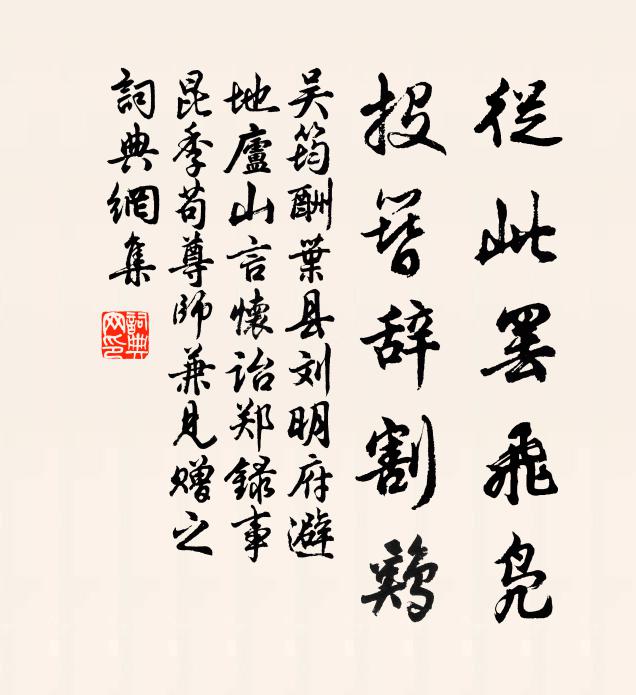 從此罢飛凫
投簪辞割鷄
吴筠酬葉县刘明府避
地廬山言懷诒郑録事
昆季苟尊師兼見赠之
詞典網集
詞典
网印